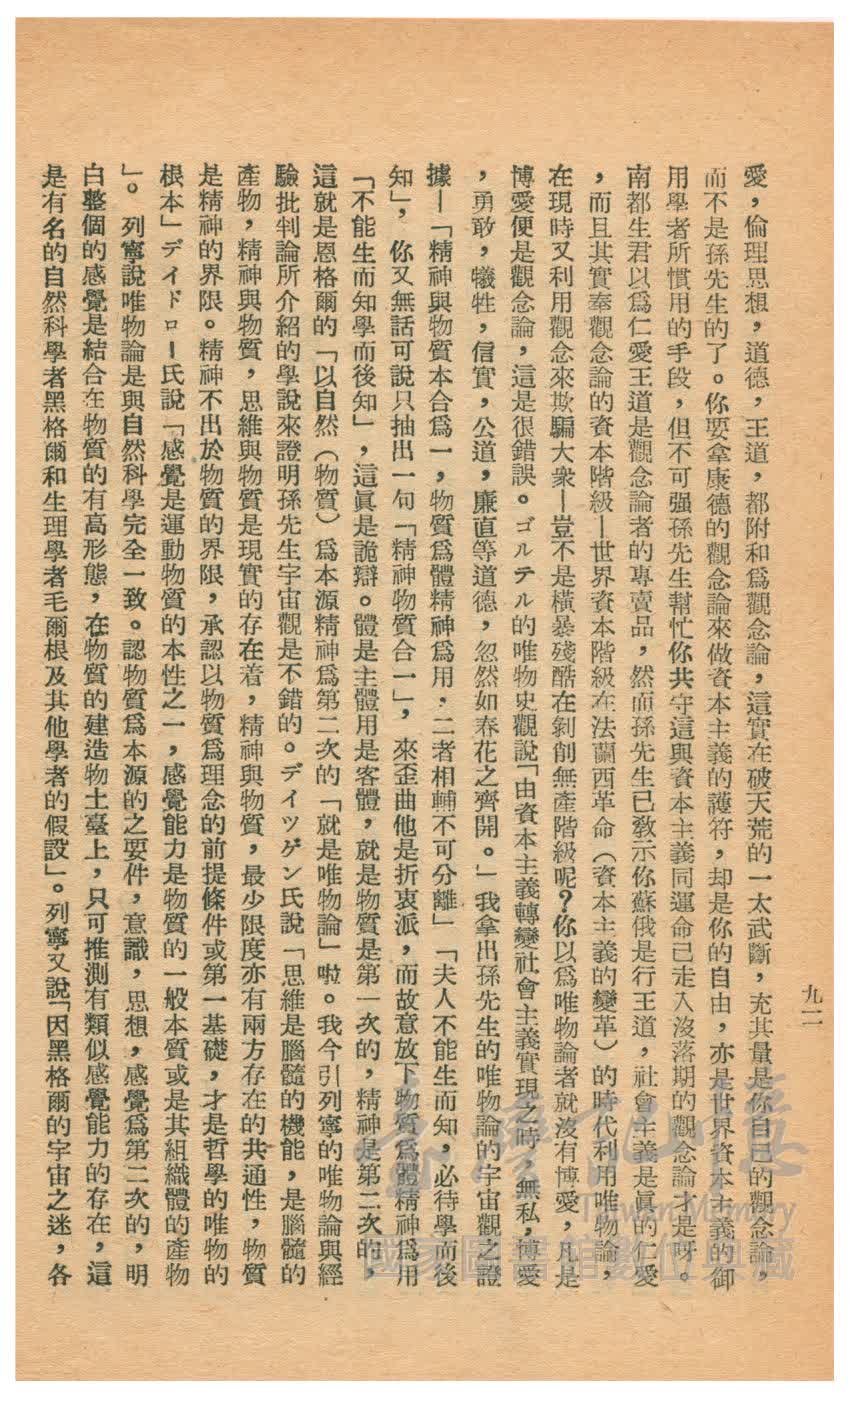 九二
愛，倫理思想，道德，王道，都附和爲觀念論，這實在破天荒的一太武斷，充其量是你自己的觀念論，
而不是孫先生的了。你要拿康德的觀念論來做資本主義的護符，却是你的自由，亦是世界資本主義的御
用學者所慣用的手段，但不可强孫先生幫忙你共守這與資本主義同運命已走入沒落期的觀念論才是呀。
南都生君以爲仁愛王道是觀念論者的專賣品，然而孫先生已敎示你蘇俄是行王道，社會主義是眞的仁愛
，而且其實奉觀念論的資本階級—世界資本階級在法蘭西革命（資本主義的變革）的時代利用唯物論，
在現時又利用觀念來欺騙大衆—豈不是橫暴殘酷在剝削無產階級呢？你以爲唯物論者就沒有博愛，凡是
博愛便是觀念論，這是很錯誤。ゴルテル的唯物史觀說「由資本主義轉變社會主義實現之時，無私，博愛
，勇敢，犧牲，信實，公道，廉直等道德，忽然如春花之齊開。」我拿出孫先生的唯物論的宇宙觀之證
據—「精神與物質本合爲一，物質爲體精神爲用，二者相輔不可分離」「夫人不能生而知，必待學而後
知」，你又無話可說只抽出一句「精神物質合一」，來歪曲他是折衷派，而故意放下物質爲體精神爲用
「不能生而知學而後知」，這眞是詭辯。體是主體用是客體，就是物質是第一次的，精神是第二次的，
這就是恩格爾的「以自然（物質）爲本源精神爲第二次的「就是唯物論」啦。我今引列寧的唯物論與經
驗批判論所介紹的學說來證明孫先生宇宙觀是不錯的。デイツゲン氏說「思維是腦髓的機能，是腦髓的
產物，精神與物質，思維與物質是現實的存在着，精神與物質，最少限度亦有兩方存在的共通性，物質
是精神的界限。精神不出於物質的界限，承認以物質爲理念的前提條件或第一基礎，才是哲學的唯物的
根本」デイドローー氏說「感覺是運動物質的本性之一，感覺能力是物質的一般本質或是其組織體的產物
」。列寧說唯物論是與自然科學完全一致。認物質爲本源的之要件，意識，思想，感覺爲第二次的，明
白整個的感覺是結合在物質的有高形態，在物質的建造物土臺上，只可推測有類似感覺能力的存在，這
是有名的自然科學者黑格爾和生理學者毛爾根及其他學者的假設」。列寧又說「因黑格爾的宇宙之迷，各
臺灣記憶
Taiwan Memory
國家圖書館數位典藏